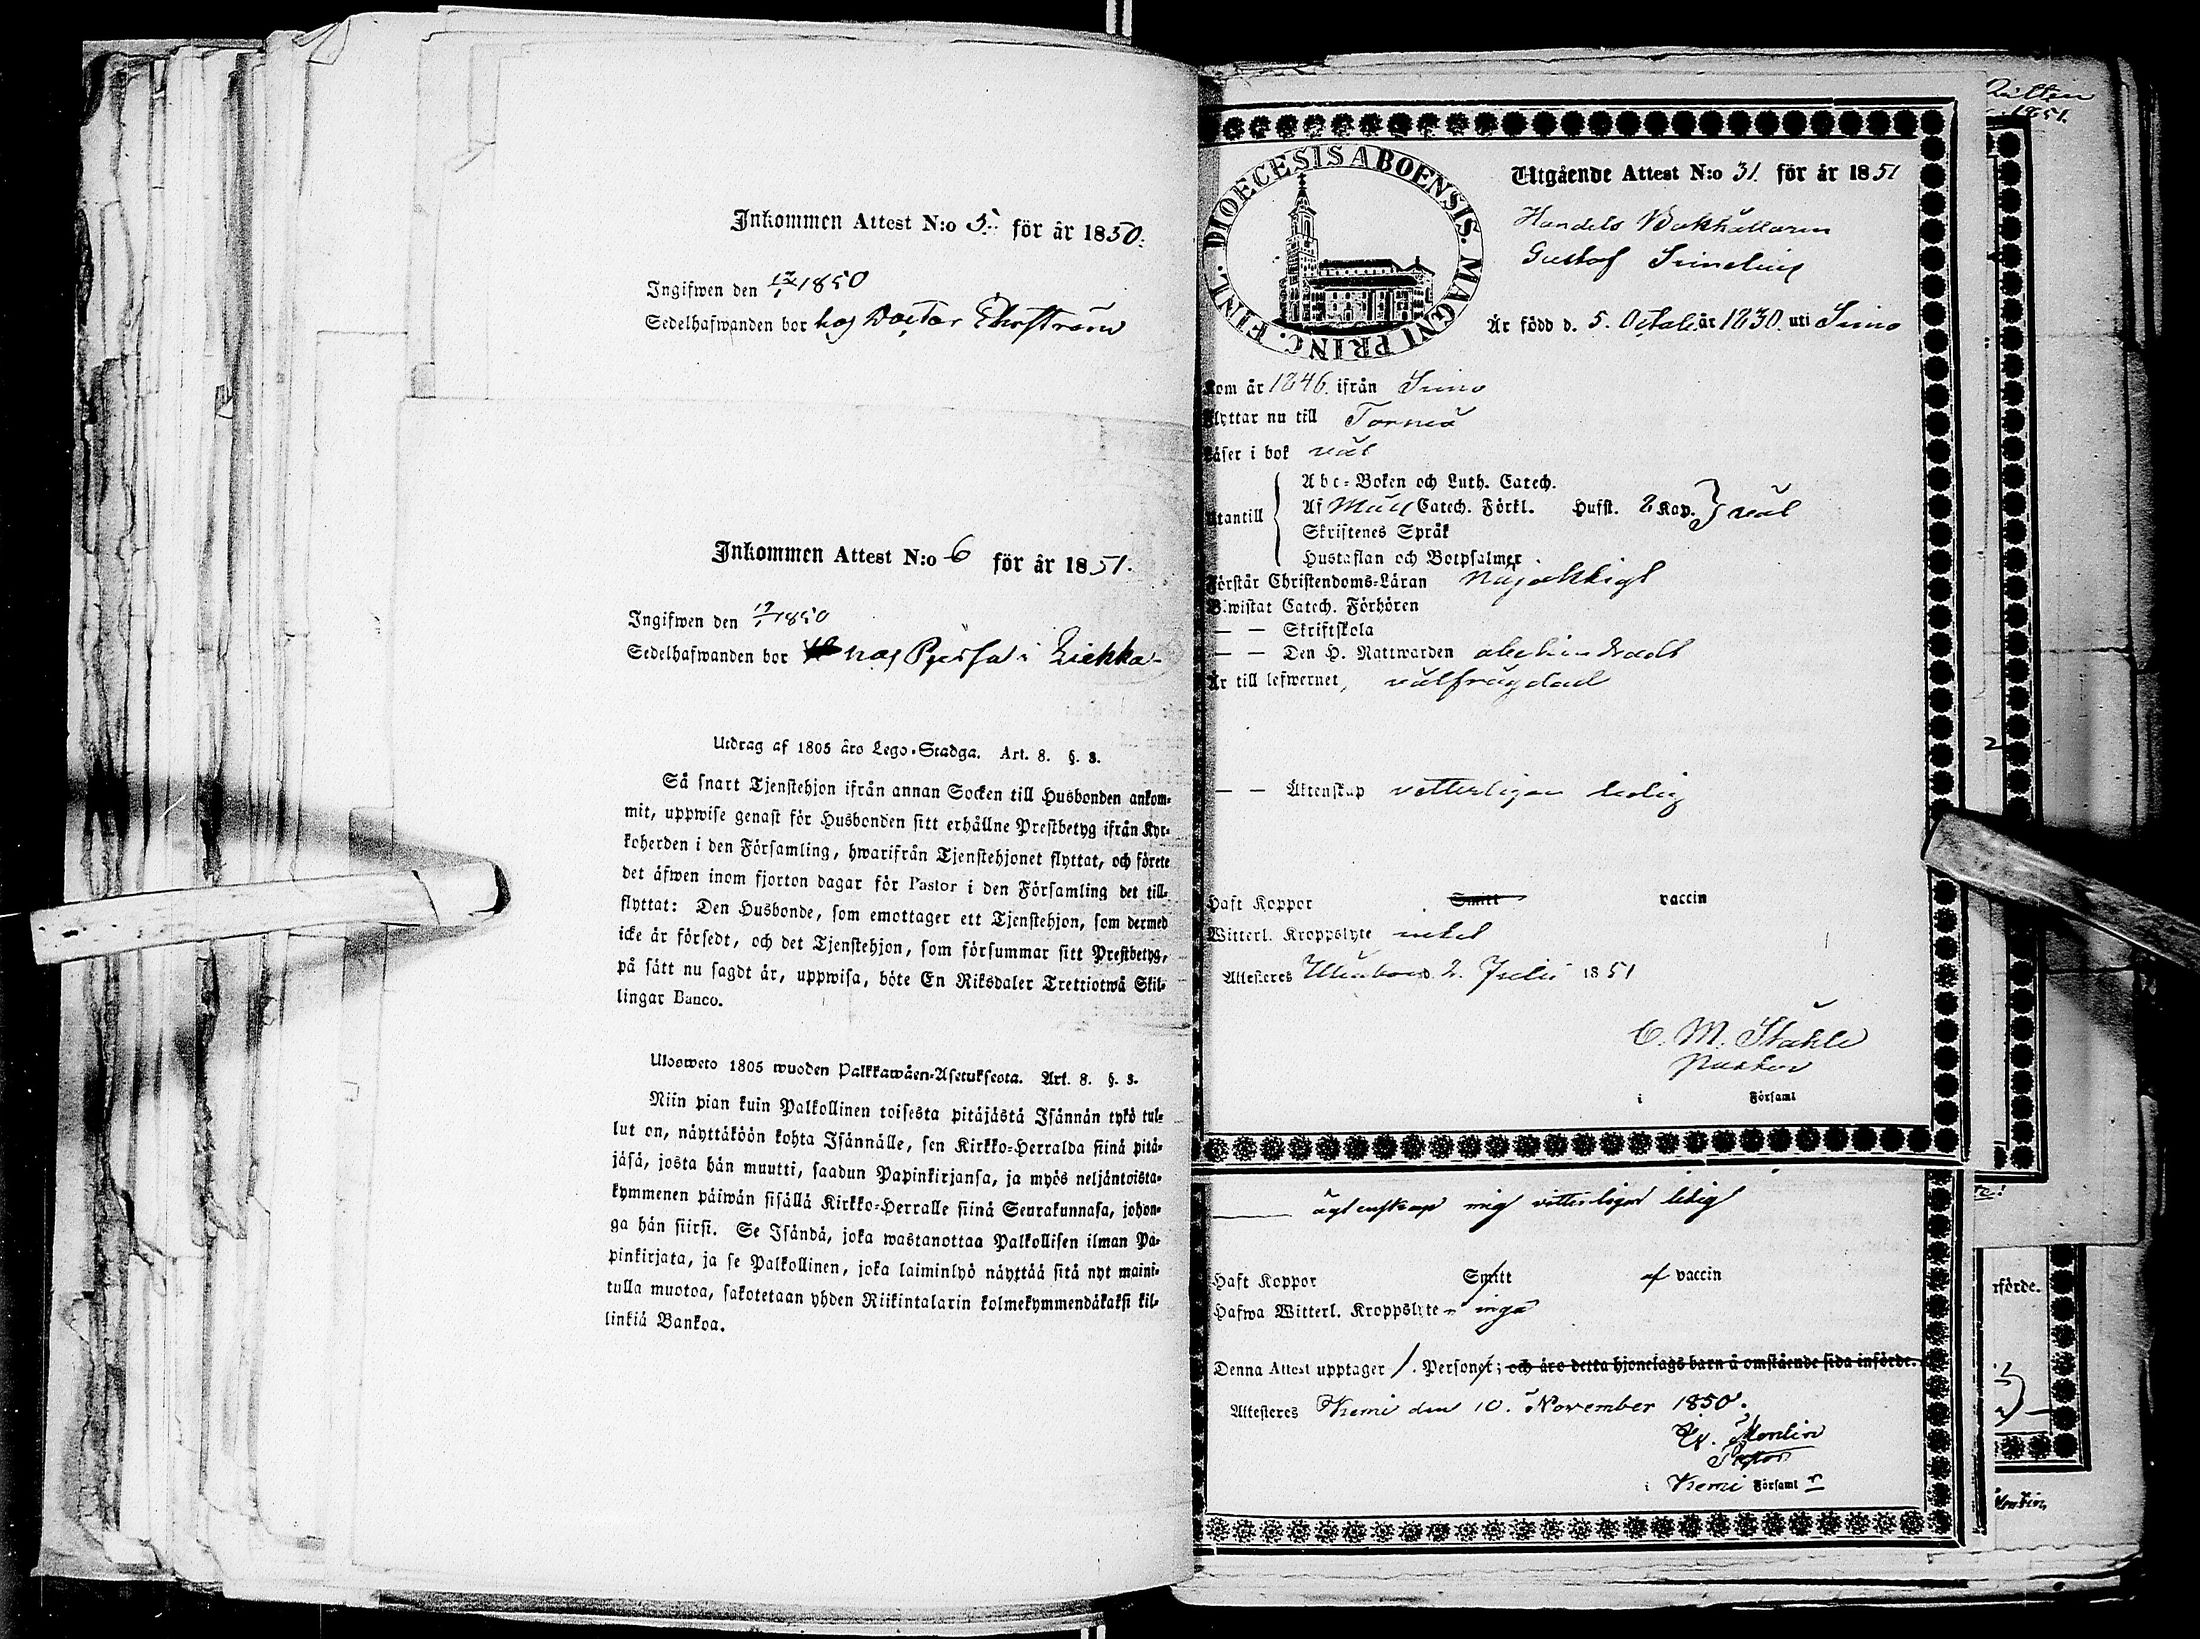 Inkommen Attest N:o 5. för år 1850.
Ingifwen den 17/1 1850
Sedelhafwanden bor hos Doctor Ehrström
Inkommen Attest N:o 6 för år 1851.
Ingifwen den 17/1 1850
Sedelhafwanden bor hos i
Utdrag af 1805 års Lego-Stadga. Art. 8. §. 3.
Så snart Tjenstehjon ifrån annan Socken till Husbonden ankom-
mit, uppwise genast för Husbonden sitt erhållne Prestbetyg ifrån Kyr-
koherden i den Församling, hwarifrån Tjenstehjonet flyttat, och förete
det äfwen inom fjorton dagar för Pastor i den Församling det till-
flyttat: Den Husbonde, som emottager ett Tjenstehjon, som dermed
icke är försedt, och det Tjenstehjon, som försummar sitt Prestbetyg,
på sätt nu sagdt är, uppwisa, böte En Riksdaler Trettiotwå Skil-
lingar Banco.
Ulosweto 1805 wuoden Palkkawäen-Asetuksesta. Art. 8. §. 3.
Niin pian kuin Palkollinen toisesta pitäjästä Isännän tykö tul-
lut on, näyttäköön kohta Isännälle, sen Kirkko-Herralda siinä pitä-
jäsä, josta hän muutti, saadun Papinkirjansa, ja myös neljäntoista-
kymmenen päiwän sisällä Kirkko-Herralle siinä Seurakunnasa, johon-
ga hän siirsi. Se Isändä, joka wastanottaa Palkollisen ilman Pa-
pinkirjata, ja se Palkollinen, joka laiminlyö näyttää sitä nyt maini-
tulla muotoa, sakotetaan yhden Riikintalarin kolmekymmendäkaksi kil-
linkiä Bankoa.
DIOECESIS ABOENSIS. MAGNI PRINC. FINL.
Utgående Attest N:o 31. för år 1851
Handels Bokhållaren
Gustof Simelius
Är född d. 5. Octob. år 1830. uti Simo
Kom år 1846. ifrån Simo
Flyttar nu till Torneå
Läser i bok väl
Utantill
Abc-Boken och Luth. Catech.
Af Catech. Förkl. Hufst. 2 Kap. } väl
Skriftenes Språk
Hustaflan och Botpsalmer
Förstår Christendoms-Läran nöjaktigt
Biwistat Catech. Förhören
— — Skriftskola
— — Den H. Nattwarden
Är till lefwernet, välfrägdad
— — Äktenskap vetterligen ledig
Haft Koppor Smitt vaccin
Witterl. Kroppslyte intet
Attesteres Uleåborg d. 2. Julii 1851
C. M. Ståhle
Pastor
i Församl
ägtenskap mig vitterligen ledig
Haft Koppor Smitt af vaccin
Hafwa Witterl. Kroppslyten inga
Denna Attest upptager 1. Personer; och äro detta hjonelags barn å omstående sida införde.
Attesteres Kemi den 10. November 1850.
Pastor
i Kemi Församl
1851.
2
rförde.